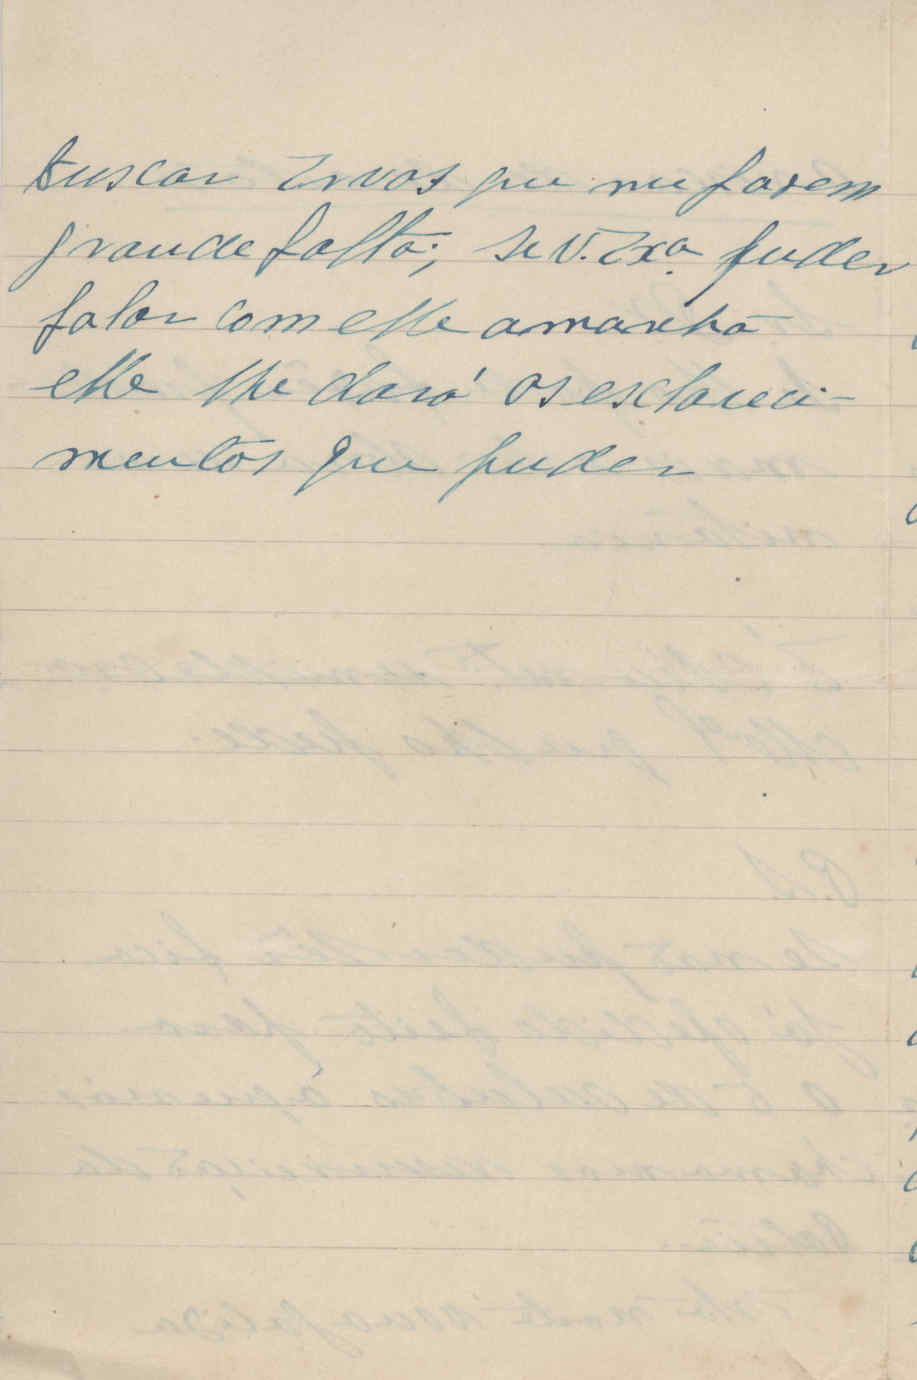 buscar ervos que me fazem
grande falta; se V. Exa. puder
falar com elle amanhã
elle lhe dará os esclareci-
mentos que puder